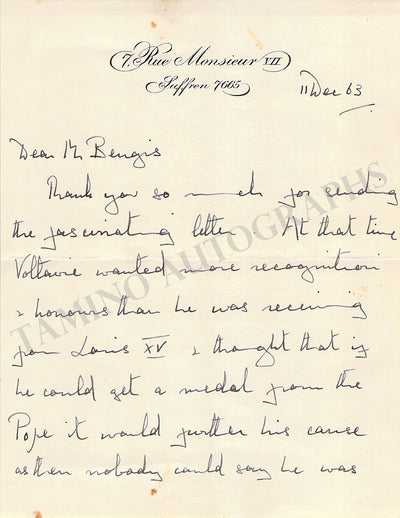 7, Rue Monsieur VII
Suffren 7665
11 Dec 63
Dear Mr Bengis
Thank you so much for sending
the fascinating letter. At that time
Voltaire wanted more recognition
& honours than he was receiving
from Louis XV & thought that if
he could get a medal from the
Pope it would further his cause
as then nobody could say he was
TAMINO AUTOGRAPHS